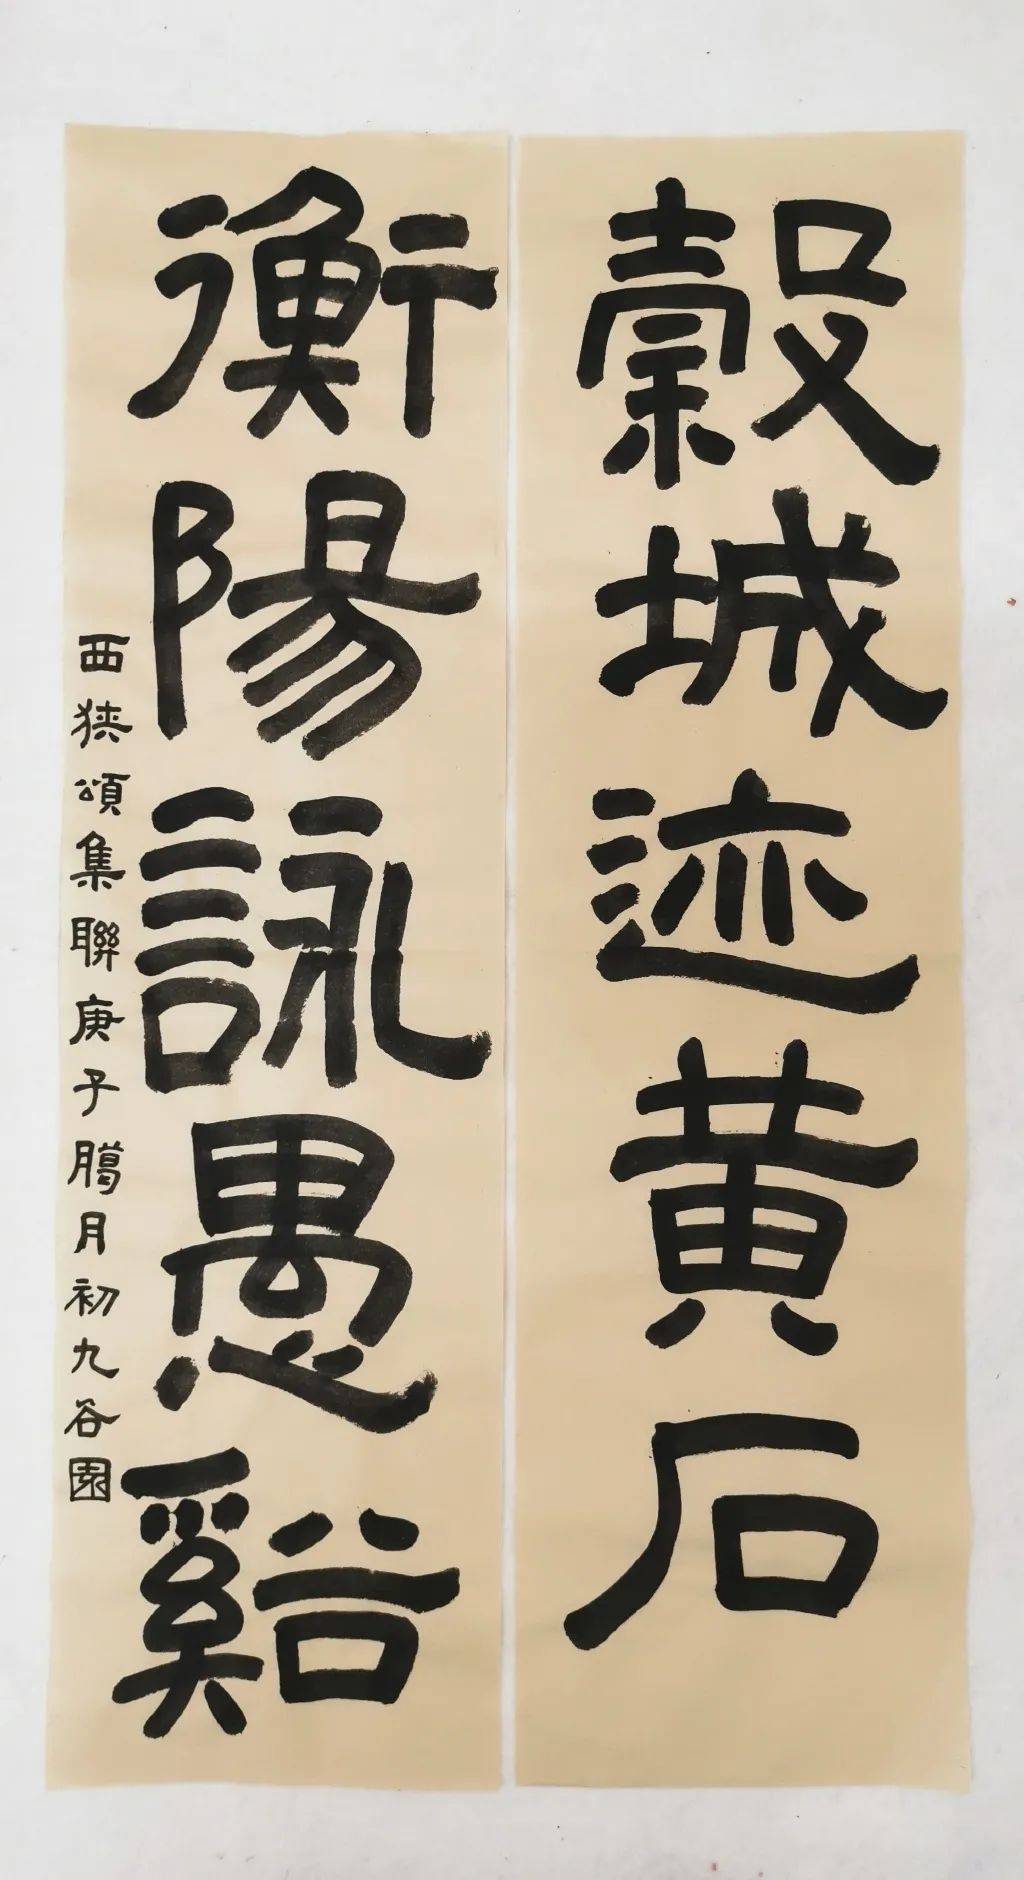 穀城迹黄石
衡陽詠愚谿
西狹頌集聯庚子臈月初九谷園